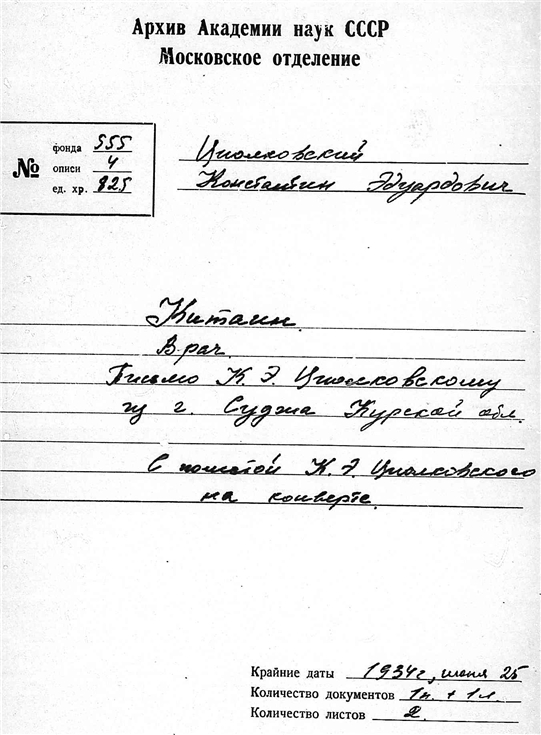 Архив Академии наук СССР
Московское отделение
№
фонда 555
описи 4
ед. хр. 825
Циолковский
Константин Эдуардович
Китаин
Врач.
Письмо К. Э. Циолковскому
из г. Суджа Курской обл.
С пометой К. Э. Циолковского
на конверте.
Крайние даты 1934г., июня 25
Количество документов 1п. + 1л.
Количество листов 2